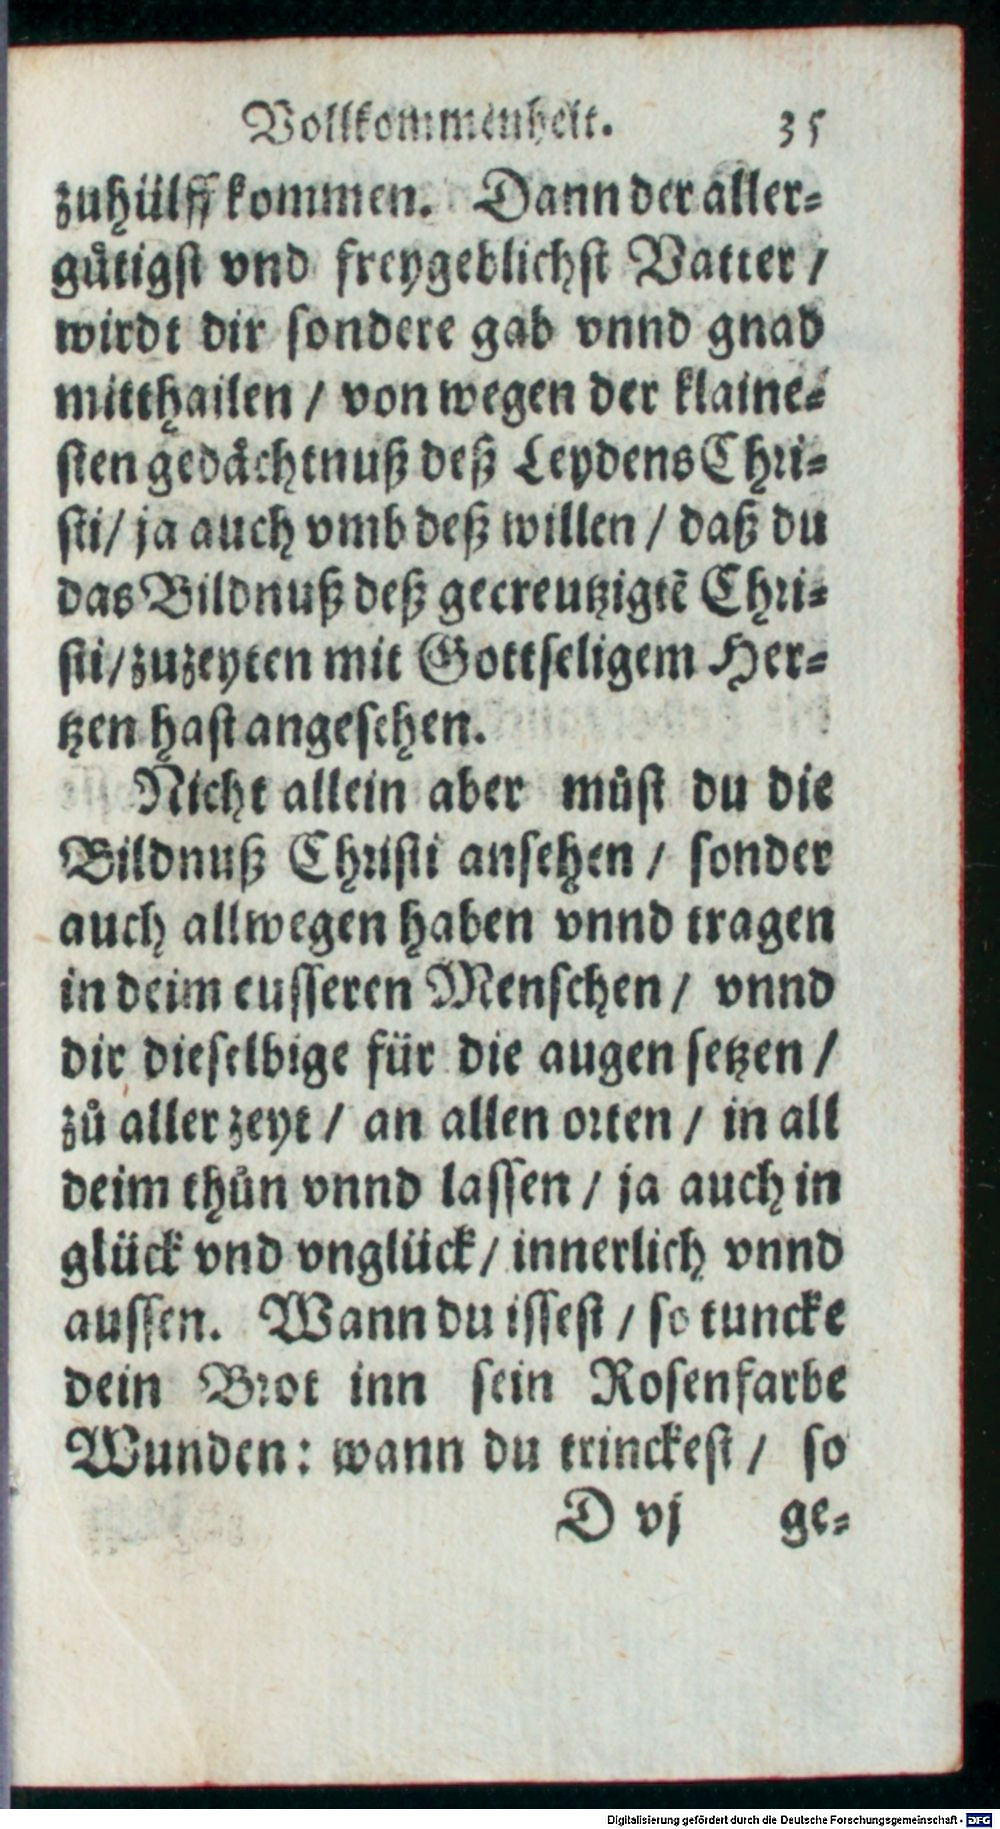 Vollkommenheit. 35
zuhülff kommen. Dann der aller-
guͤtigst vnd freygeblichst Vatter /
wirdt dir sondere gab vnnd gnad
mitthailen / von wegen der klaine-
sten gedaͤchtnuß deß Leydens Chri-
sti / ja auch vmb deß willen / daß du
das Bildnuß deß gecreutzigtē Chri-
sti / zuzeyten mit Gottseligem Her-
tzen hast angesehen.
Nicht allein aber muͦst du die
Bildnuß Christi ansehen / sonder
auch allwegen haben vnnd tragen
in deim eusseren Menschen / vnnd
dir dieselbige für die augen setzen /
zuͦ aller zeyt / an allen orten / in all
deim thuͦn vnnd lassen / ja auch in
glück vnd vnglück / innerlich vnnd
aussen. Wann du issest / so tuncke
dein Brot inn sein Rosenfarbe
Wunden: wann du trinckest / so
D vj ge-
Digitalisierung gefördert durch die Deutsche Forschungsgemeinschaft - DFG